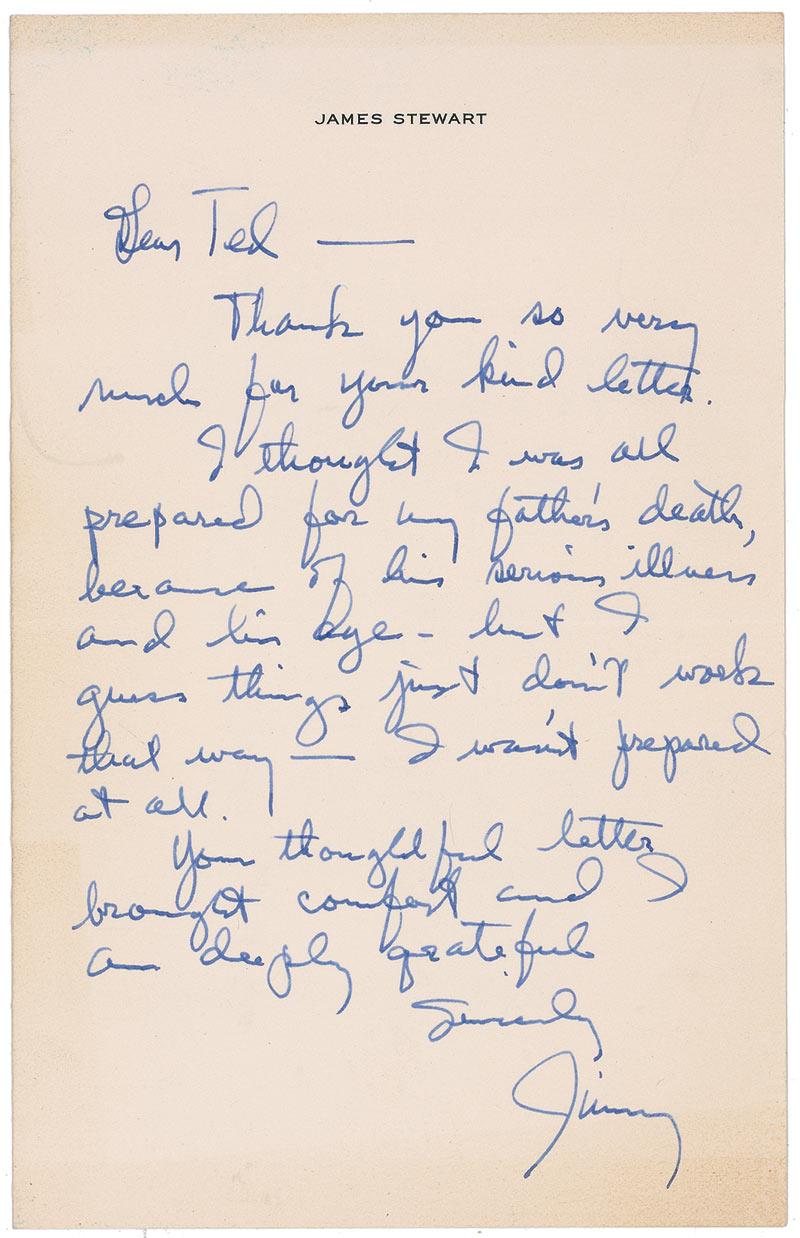 JAMES STEWART
Dear Ted —
Thank you so very
much for your kind letter.
I thought I was all
prepared for my father's death,
because of his serious illness
and his age - but I
guess things just don't work
that way — I wasn't prepared
at all.
Your thoughtful letter
brought comfort and I
am deeply grateful
Sincerely
Jimmy